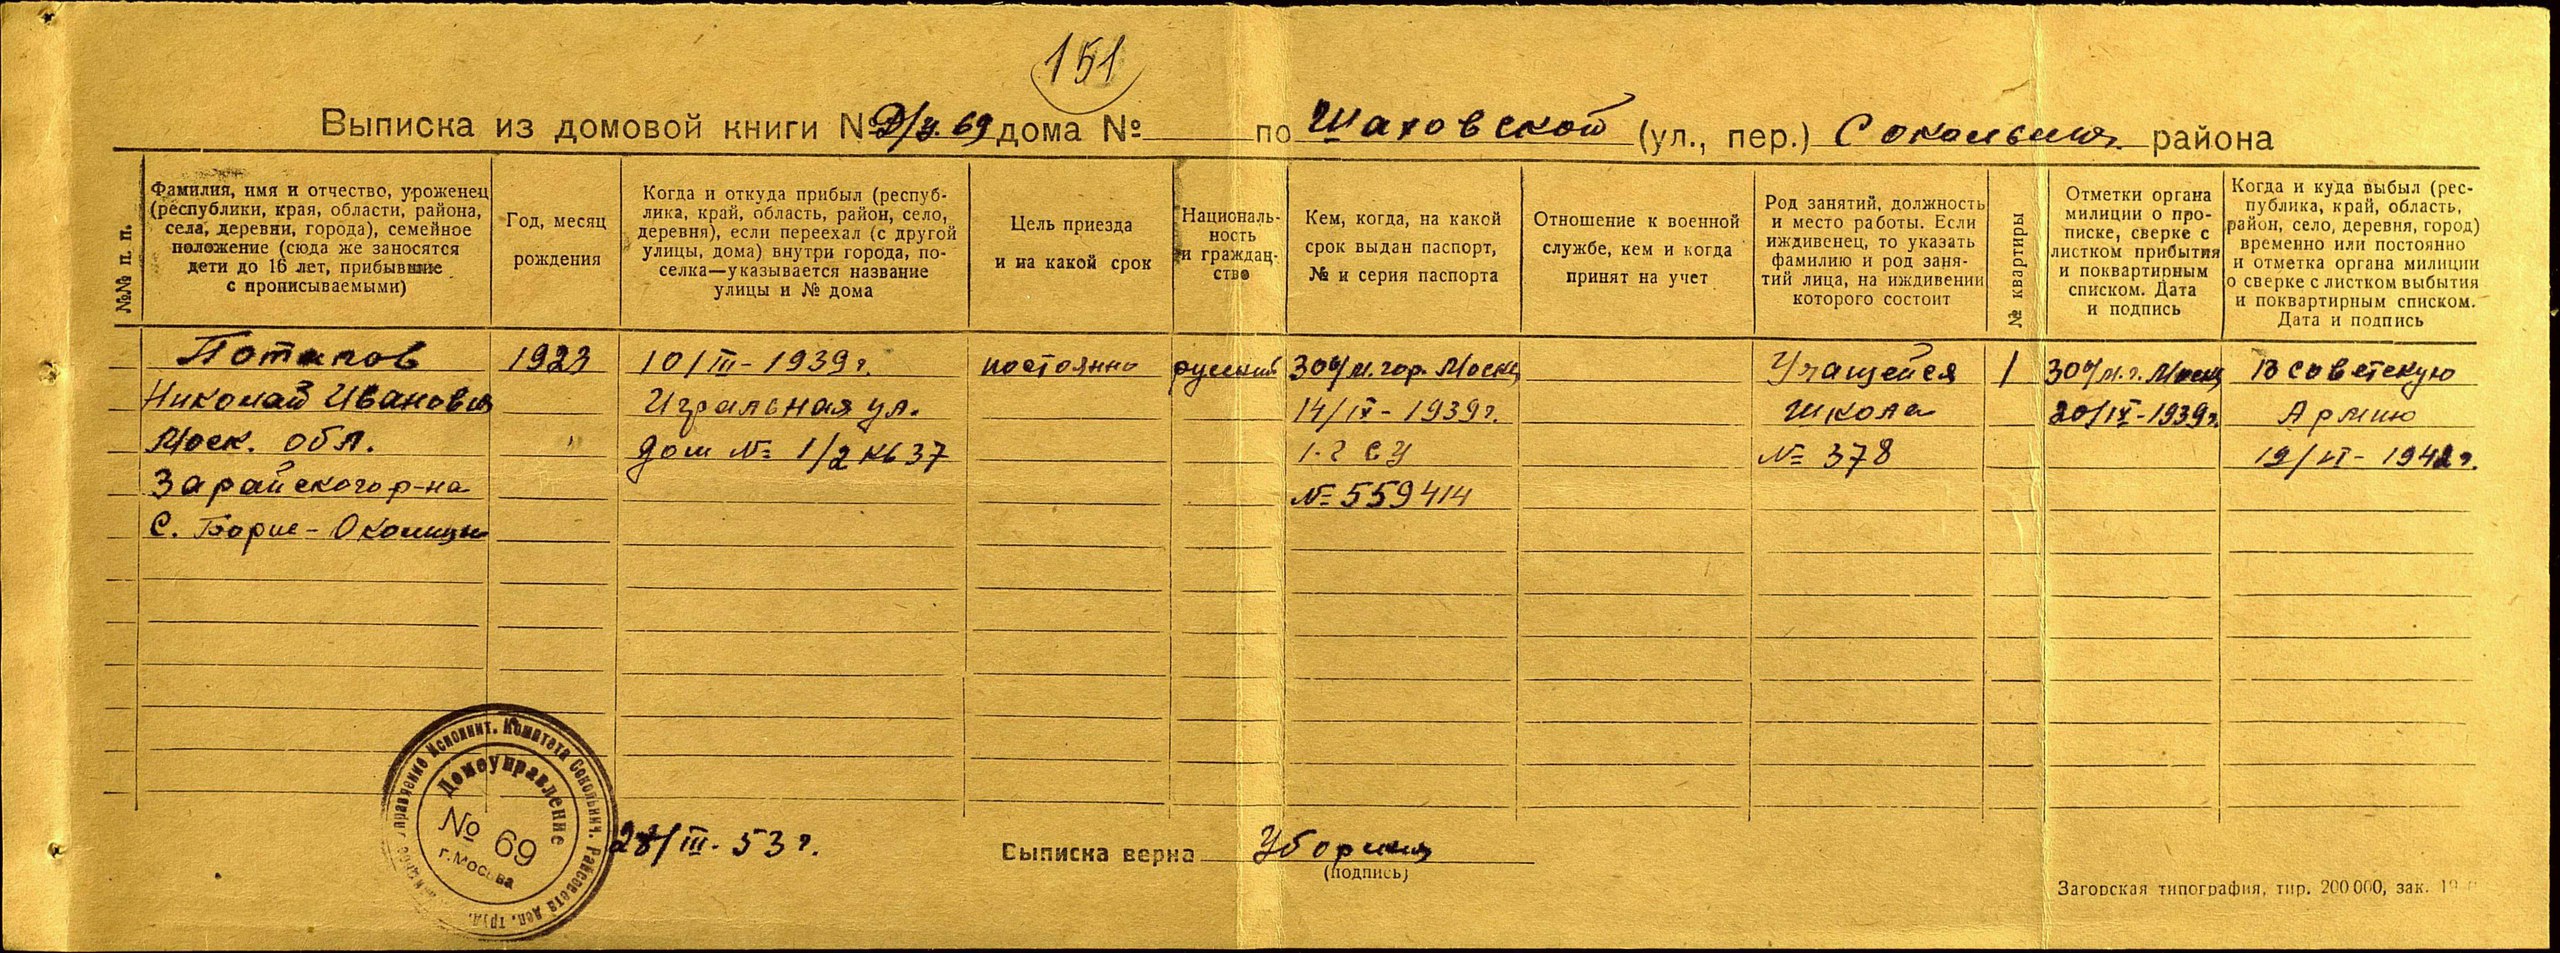 151
Выписка из домовой книги № Д/у. 69 дома № по Шаховской (ул., пер.) Сокольнич. района
№№ п. п.
Фамилия, имя и отчество, уроженец
(республики, края, области, района,
села, деревни, города), семейное
положение (сюда же заносятся
дети до 16 лет, прибывшие
с прописываемыми)
Год, месяц
рождения
Когда и откуда прибыл (респуб-
лика, край, область, район, село,
деревня), если переехал (с другой
улицы, дома) внутри города, по-
селка—указывается название
улицы и № дома
Цель приезда
и на какой срок
Националь-
ность
и граждан-
ство
Кем, когда, на какой
срок выдан паспорт,
№ и серия паспорта
Отношение к военной
службе, кем и когда
принят на учет
Род занятий, должность
и место работы. Если
иждивенец, то указать
фамилию и род заня-
тий лица, на иждивении
которого состоит
№ квартиры
Отметки органа
милиции о про-
писке, сверке с
листком прибытия
и поквартирным
списком. Дата
и подпись
Когда и куда выбыл (рес-
публика, край, область,
район, село, деревня, город)
временно или постоянно
и отметка органа милиции
о сверке с листком выбытия
и поквартирным списком.
Дата и подпись
Потапов
Николай Иванович
Моск. обл.
Зарайского р-на
С. Борис-Околицы
1923
10/III-1939г.
Игральная ул.
дом № 1/2 кв 37
постоянно
русский
30 о/м. гор. Москвы
14/IX-1939г.
№ 559414
Учащейся
школа
№ 378
1
30 о/м. г. Москвы
20/IX-1939г.
В советскую
Армию
19/VI-1942г.
Управление Исполнит. Комитета Сокольнич. Райсовета деп. труд.
Домоуправление
№ 69
г. Москва
28/III-53 г.
Выписка верна
(подпись)
Загорская типография, тир. 200 000, зак.